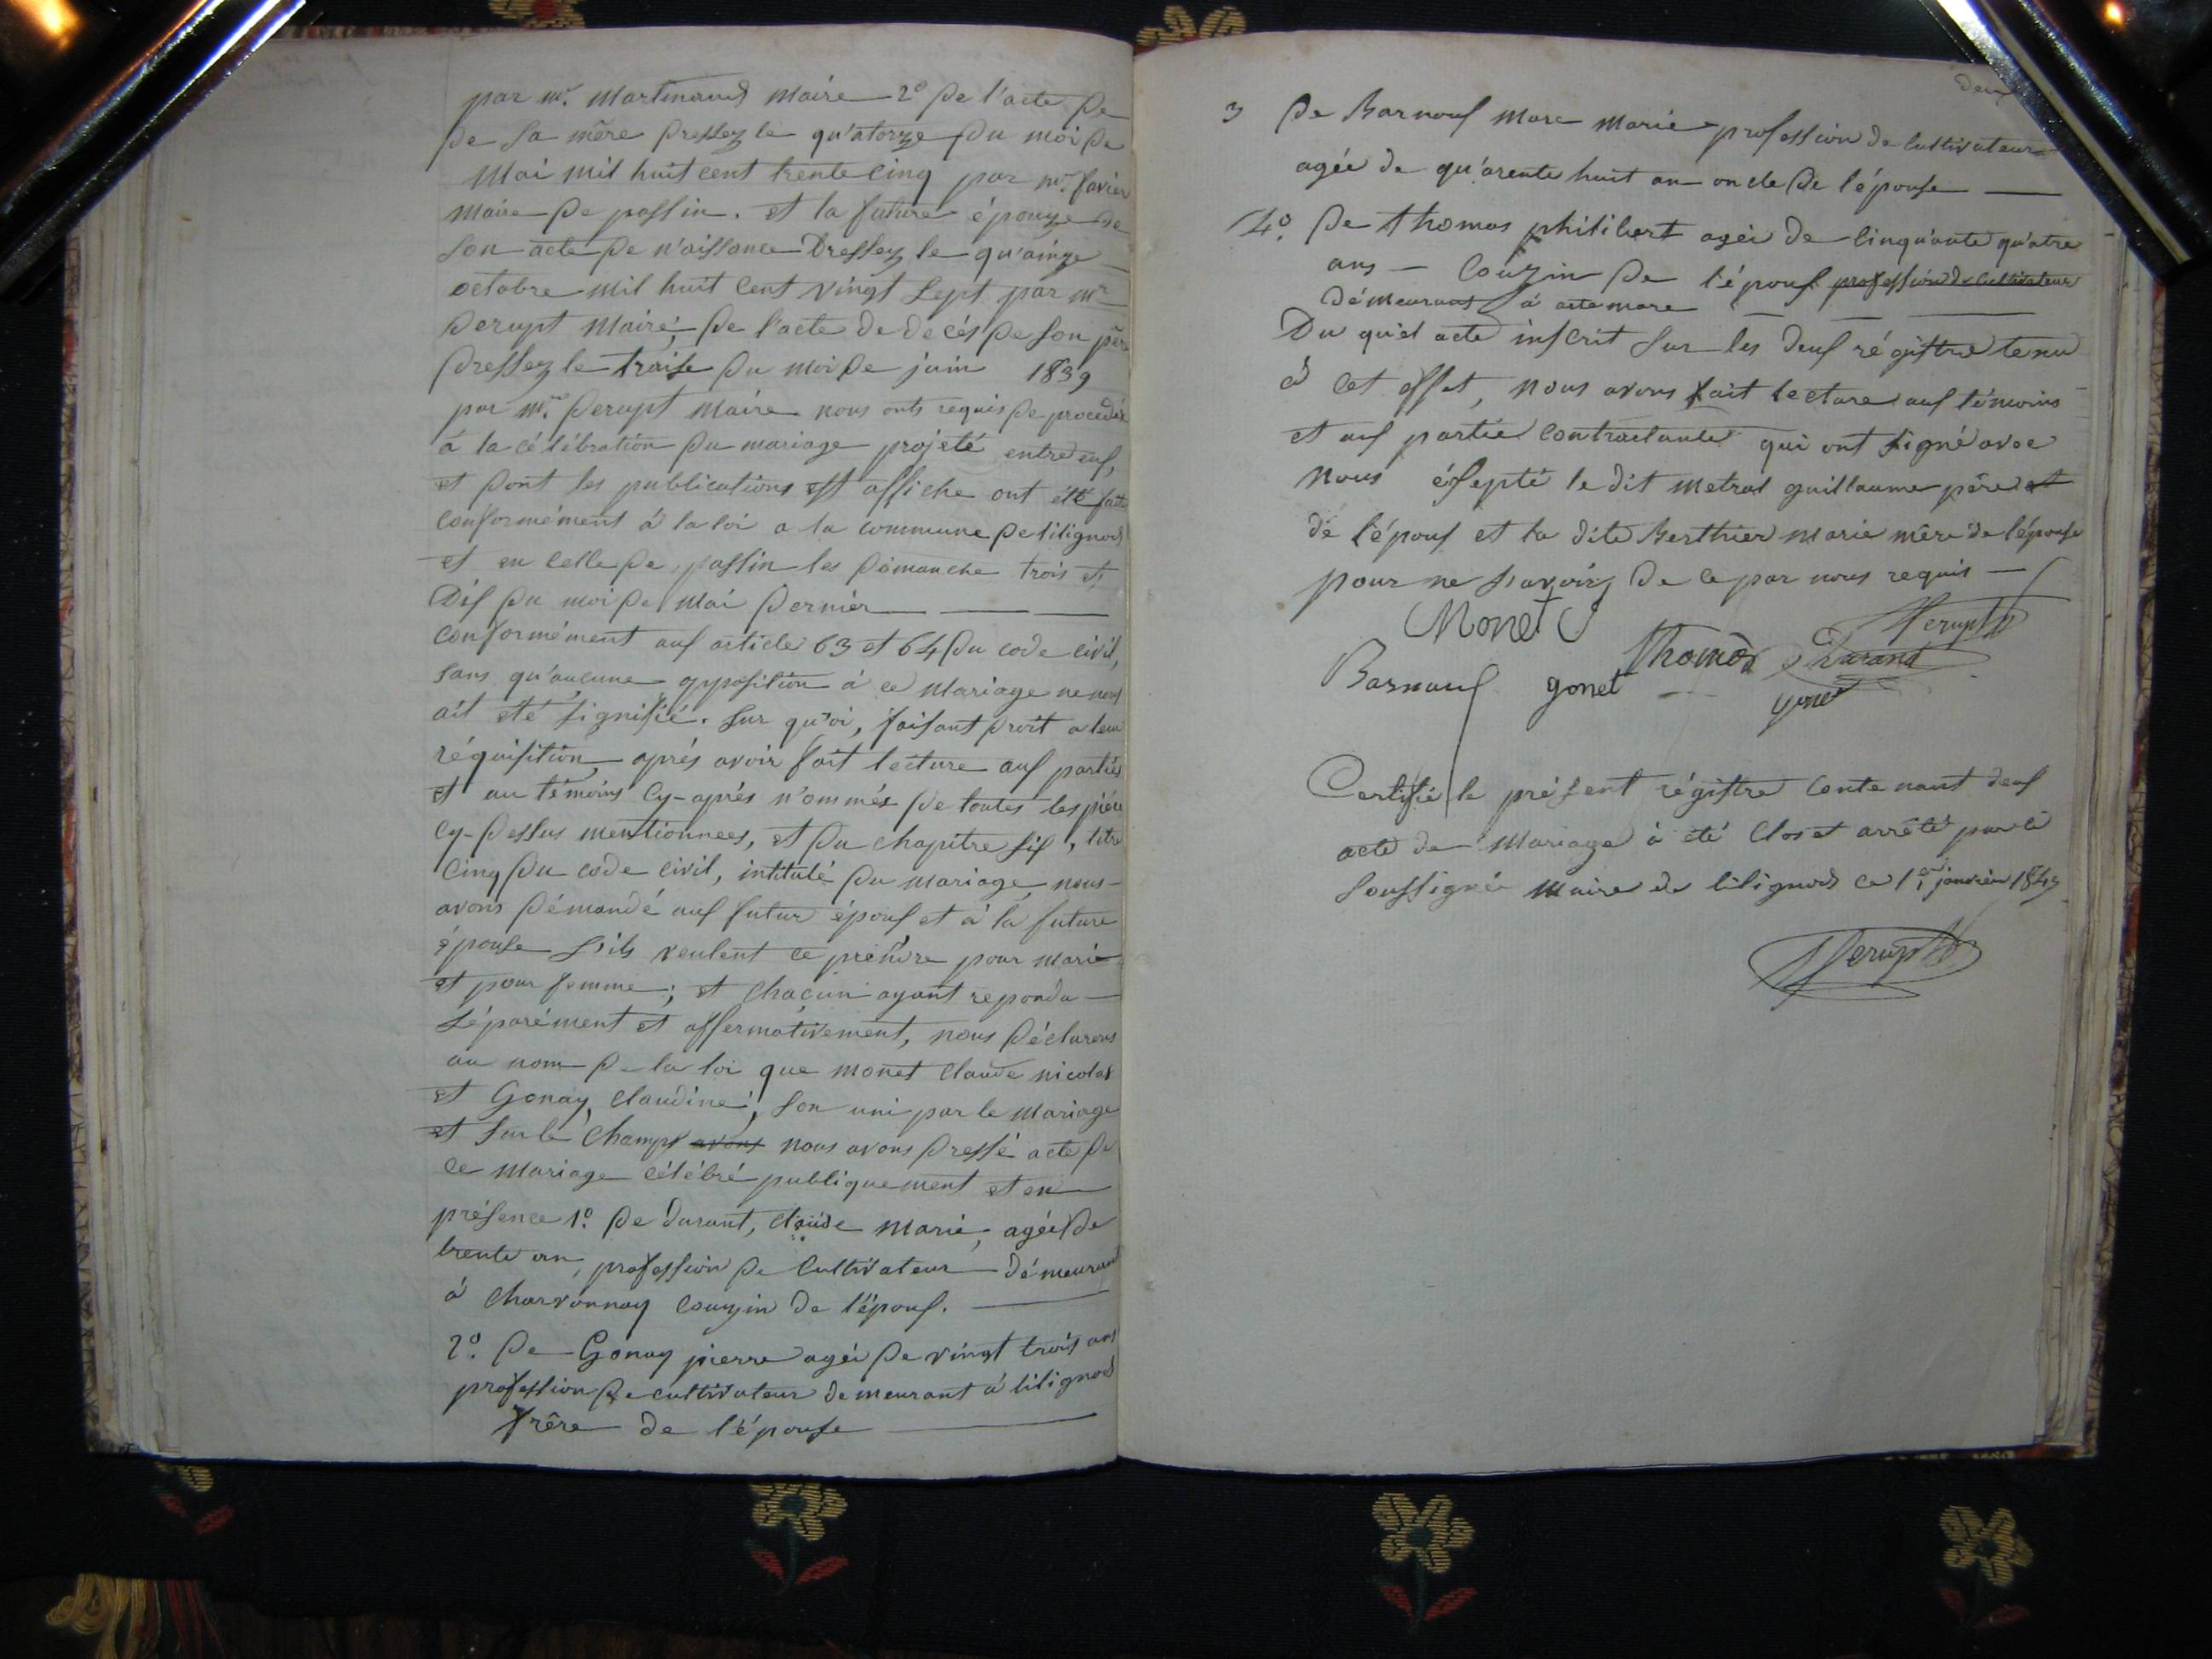 par mr. Martinand Maire 2° de l'acte de
de sa mêre dressez le qu'atorze du moi de
Mai mil huit cent trente cinq par mr. favier
maire de passin. et la future épouze de
son acte de n'aissance dressez le qu'ainze
octobre mil huit cent vingt sept par mr
perupt Maire, de l'acte de decés de son père
dressez le traise du moi de juin 1839
par mr. perupt Maire nous onts requis de procedér
à la célébration du mariage projeté entre eux,
et dont les publications est affiche ont été faite
conformément à la loi a la commune de lilignod
et en celle de passin les dimanche trois et
Dix du moi de Mai dernier
conformément aux article 63 et 64 du code civil,
sans qu'aucune opposition à ce Mariage ne nous
ait été signifié. sur qu'oi, faisant droit a leur
réquisition après avoir fait lecture aux parties
et au témoins cy-après n'ommés de toutes les pièce
cy-dessus mentionnees, et du chapitre six, titre
Cinq du code civil, intitulé du mariage, nous
avons démandé aux futur époux et à la future
épouse s'ils veulent ce prendre pour mari
et pour femme; et chacun ayant repondu
séparément et affermativement, nous déclarons
au nom de la loi que monet claude nicolas
et Gonay, claudine, son uni par le mariage
et sur le champs avons nous avons dressé acte de
ce mariage célébré publiquement et en
présence 1°. de durant, claude marie, agée de
trente an, profession de Cultivateur démeurant
à charvonnay couzin de l'époux.
2°. de Gonay pierre agée de vingt trois ans
profession de cultivateur demeurant à lilignod
frêre de l'épouse
deux
3 de Barnoux Marc Marie profession de cultivateur
agée de qu'arente huit an oncle de l'épouse
4°. de thomas philibert agée de cinqu'ante qu'atre
ans couzin de l'époux profession de cultivateur
démeurant à artemare
Du qu'el acte inscrit sur les deux régistre tenu
à cet effet, nous avons fait lecture aux témoins
et aux partie contractante qui ont signé avec
nous éxepté le dit metral guillaume père et
de l'époux et la dite Berthier marie mêre de l'épouse
pour ne savoirs de ce par nous requis
Monet
Perupt
Barnoux gonet Thomas Durand
gonet
Certifié le présent régistre contenant deux
acte de Mariage à été clos et arrêté par le
soussignée Maire de lilignod ce 1er janvier 1843
Perupt